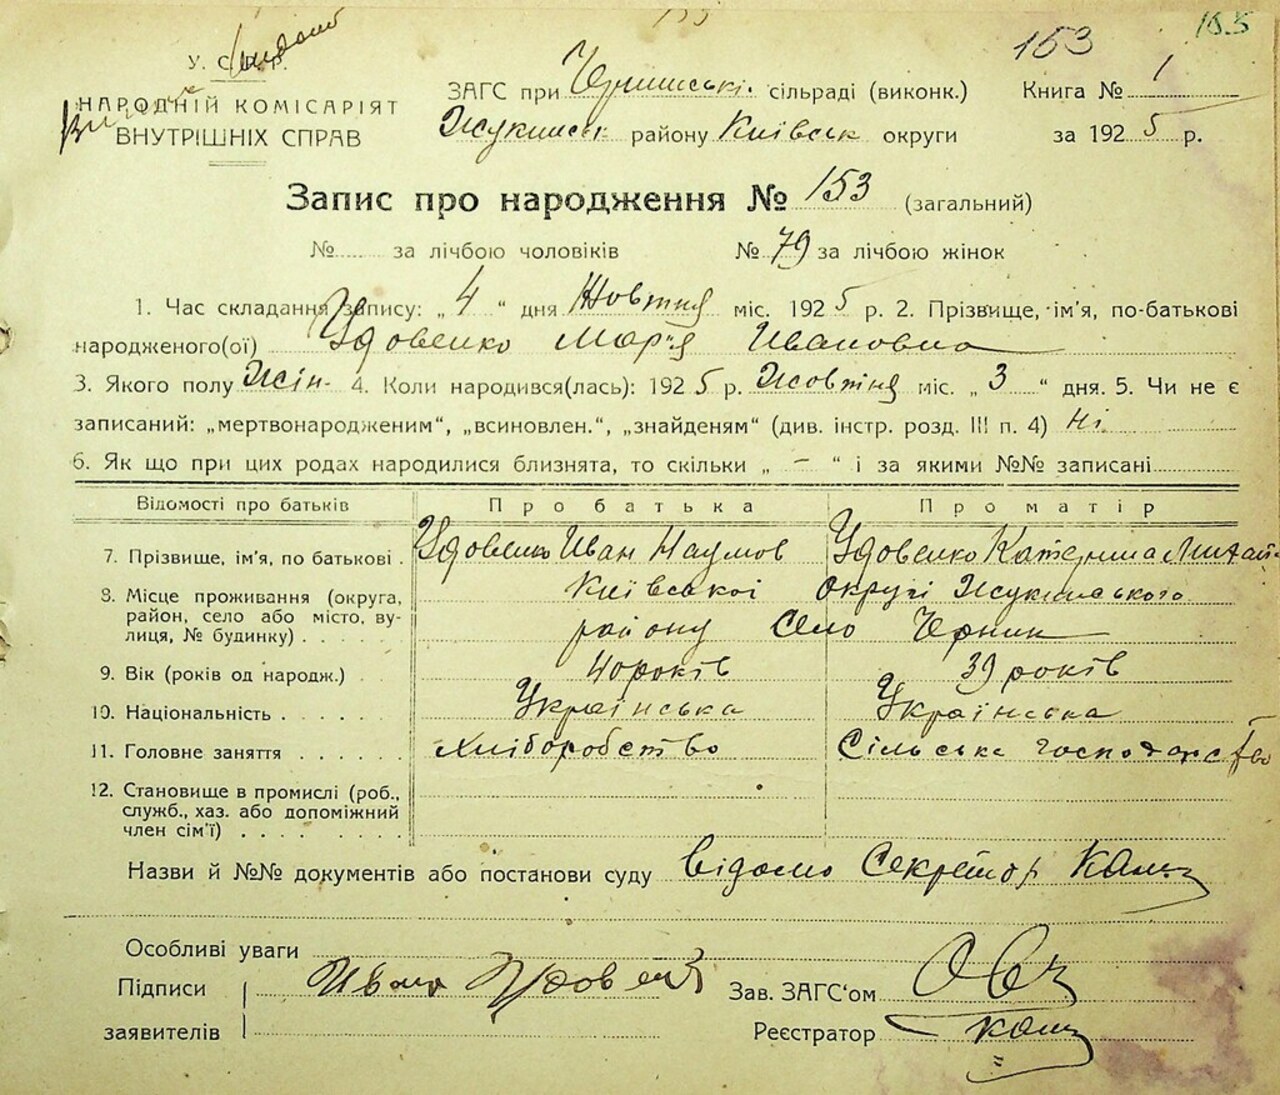 153
153
У. С.
НАРОДНІЙ КОМІСАРІЯТ
ВНУТРІШНІХ СПРАВ
ЗАГС при сільраді (виконк.) Книга № 1
району Київськ округи за 1925 р.
Запис про народження № 153 (загальний)
№ за лічбою чоловіків № 79 за лічбою жінок
1. Час складання запису: „4“ дня Жовтня міс. 1925 р. 2. Прізвище, ім'я, по-батькові
народженого(ої) Удовенко Мар'я Ивановна
3. Якого полу Жін- 4. Коли народився(лась): 1925 р. Жовтня міс. „3“ дня. 5. Чи не є
записаний: „мертвонародженим“, „всиновлен.“, „знайденям“ (див. інстр. розд. III п. 4) Ні
6. Як що при цих родах народилися близнята, то скільки „ – “ і за якими №№ записані
Відомості про батьків Про батька Про матір
7. Прізвище, ім'я, по батькові Удовенко Иван Наумов Удовенко Катерина
8. Місце проживання (округа, район, село або місто, вулиця, № будинку) Київської округі Жукинського
району Село Чернин
9. Вік (років од народж.) 40 років 39 років
10. Національність Українська Українська
11. Головне заняття Хліборобство Сільська господарство
12. Становище в промислі (роб.,
служб., хаз. або допоміжний
член сім'ї)
Назви й №№ документів або постанови суду Відомо Секретар
Особливі уваги
Підписи Зав. ЗАГС'ом
заявителів Реєстратор